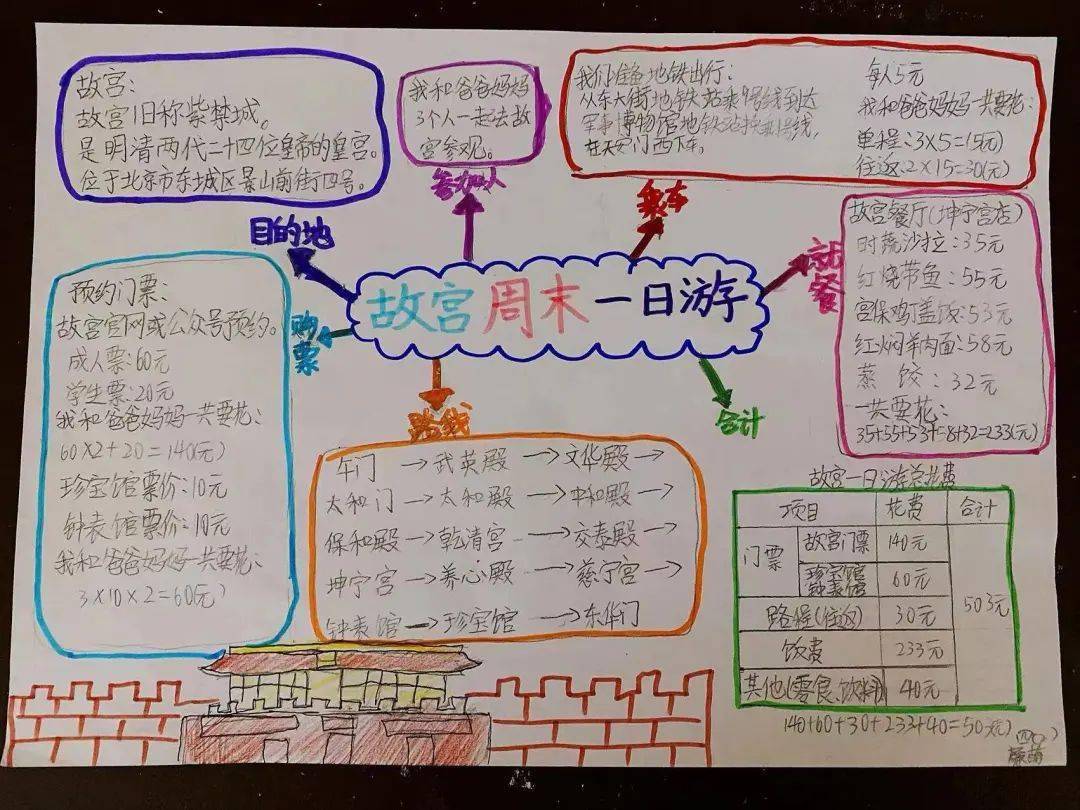 故宫周末一日游
目的地
故宫:
故宫旧称紫禁城。
是明清两代二十四位皇帝的皇宫。
位于北京市东城区景山前街四号。
参加人
我和爸爸妈妈
3个人一起去故
宫参观。
乘车
我们准备地铁出行:
从东大街地铁站乘9号线到达
军事博物馆地铁站换乘1号线,
在天安门西下车。
每人5元
我和爸爸妈妈一共要花:
单程:3×5=15(元)
往返:2×15=30(元)
就餐
故宫餐厅(坤宁宫店)
时蔬沙拉:35元
红烧带鱼:55元
宫保鸡丁盖饭:53元
红焖羊肉面:58元
蒸饺:32元
一共要花:
35+55+53+58+32=233(元)
购票
预约门票:
故宫官网或公众号预约。
成人票:60元
学生票:20元
我和爸爸妈妈一共要花:
60×2+20=140(元)
珍宝馆票价:10元
钟表馆票价:10元
我和爸爸妈妈一共要花:
3×10×2=60(元)
路线
午门→武英殿→文华殿→
太和门→太和殿→中和殿→
保和殿→乾清宫→交泰殿→
坤宁宫→养心殿→慈宁宫→
钟表馆→珍宝馆→东华门
合计
故宫一日游总花费
项目 花费 合计
门票 故宫门票 140元 503元
珍宝馆
钟表馆 60元
路程(往返) 30元
饭费 233元
其他(零食、饮料) 40元
140+60+30+233+40=503(元)